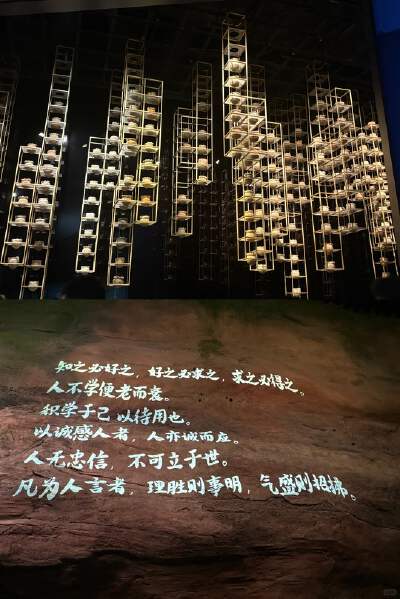 知之必好之，好之必求之，求之必得之。
人不学便老而衰。
积学于己以待用也。
以诚感人者，人亦诚而应。
人无忠信，不可立于世。
凡为人言者，理胜则事明，气盛则招拂。